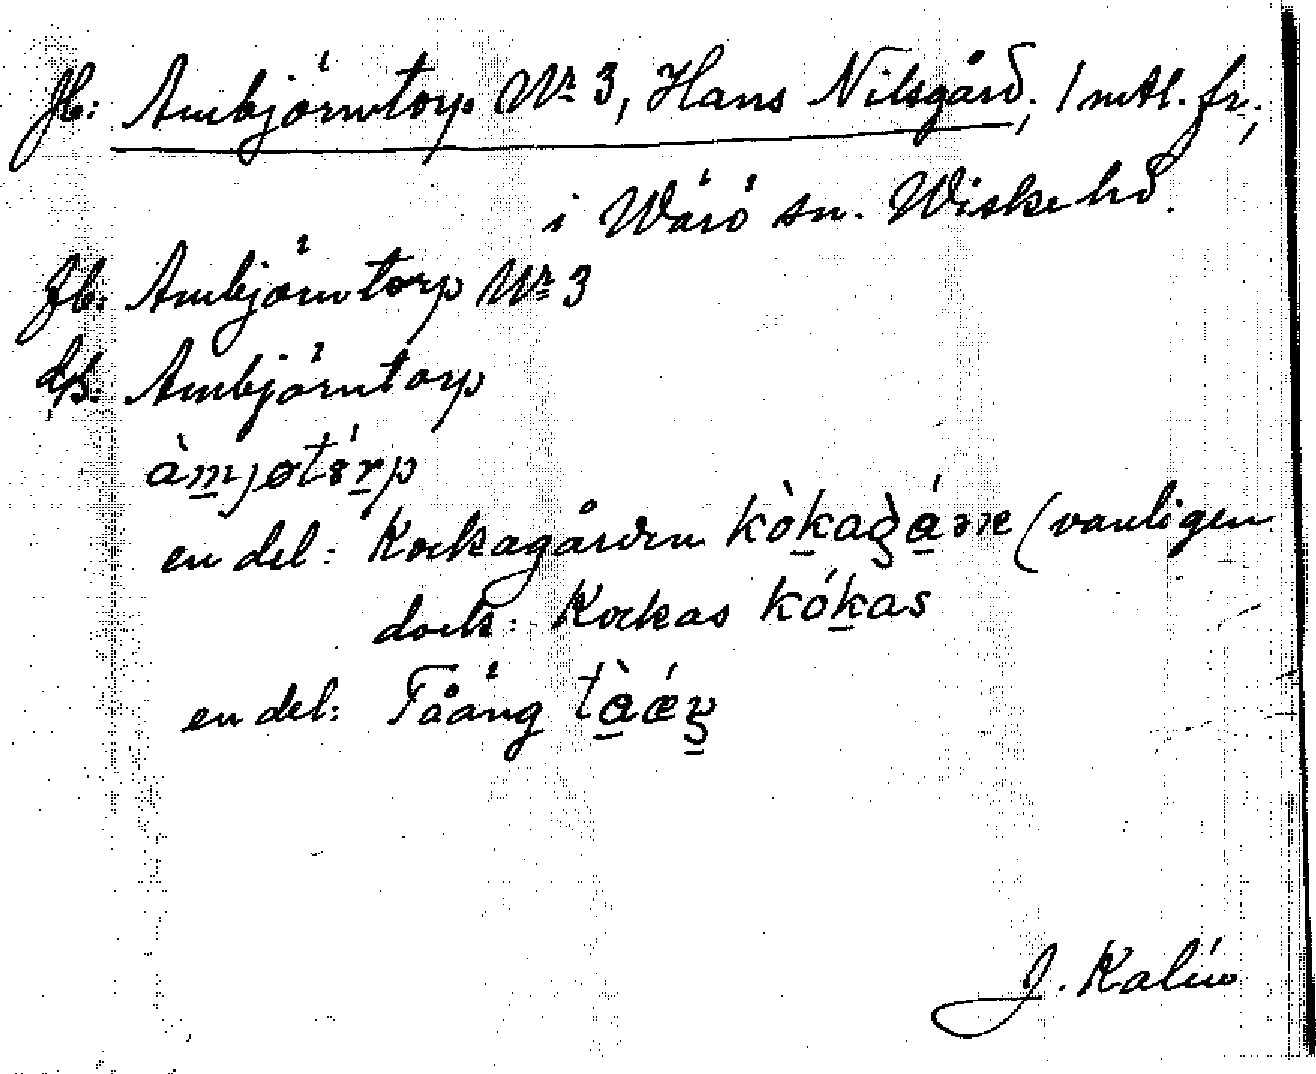 Jb: Ambjörntorp No 3, Hans Nilsgård; 1 mtl. fr;
i Wärö sn. Wiske hd.
Jb: Ambjörntorp No 3
Ambjörntorp
en del: Kockagården (vanligen
dock: Kockas kókas
en del: Tååäng
J. Kalén